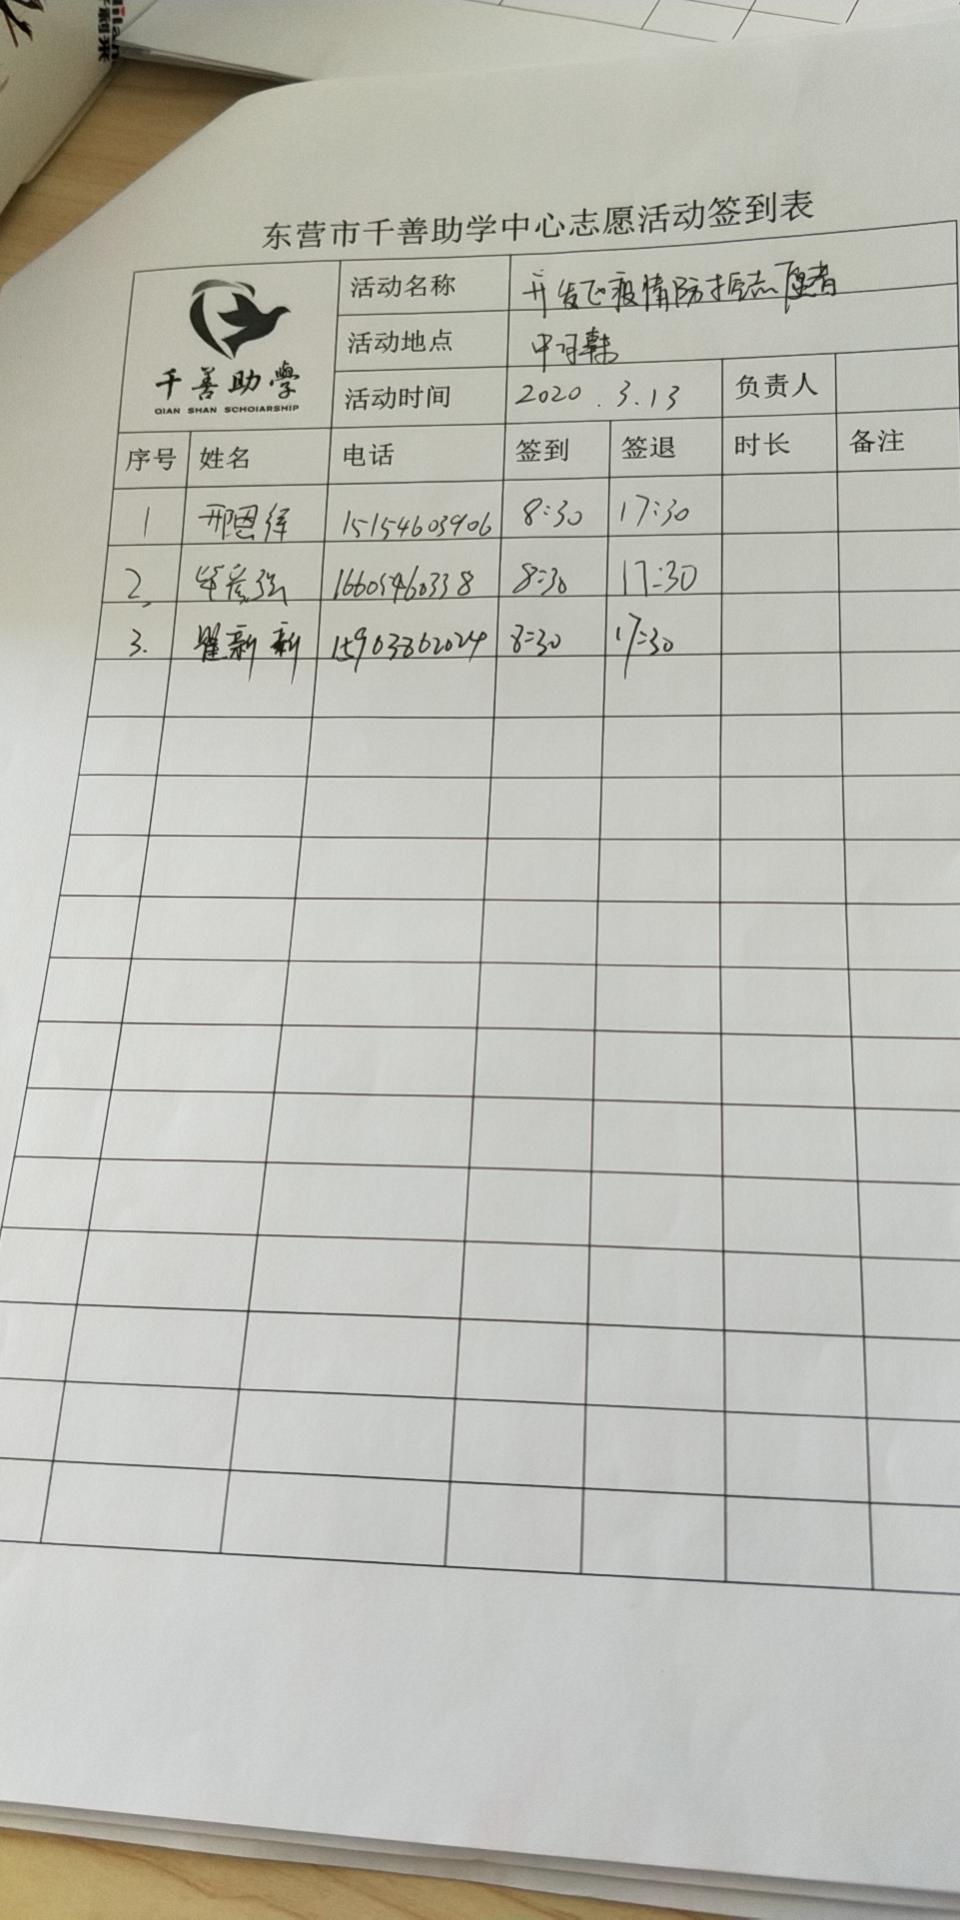 东营市千善助学中心志愿活动签到表
千善助學
QIAN SHAN SCHOIARSHIP
活动名称 开发区疫情防控志愿者
活动地点
活动时间 2020.3.13 负责人
序号 姓名 电话 签到 签退 时长 备注
1 邢恩绎 15154603906 8:30 17:30
2. 毕彦强 16605460338 8:30 17:30
3. 翟新新 15903862024 8:30 17:30